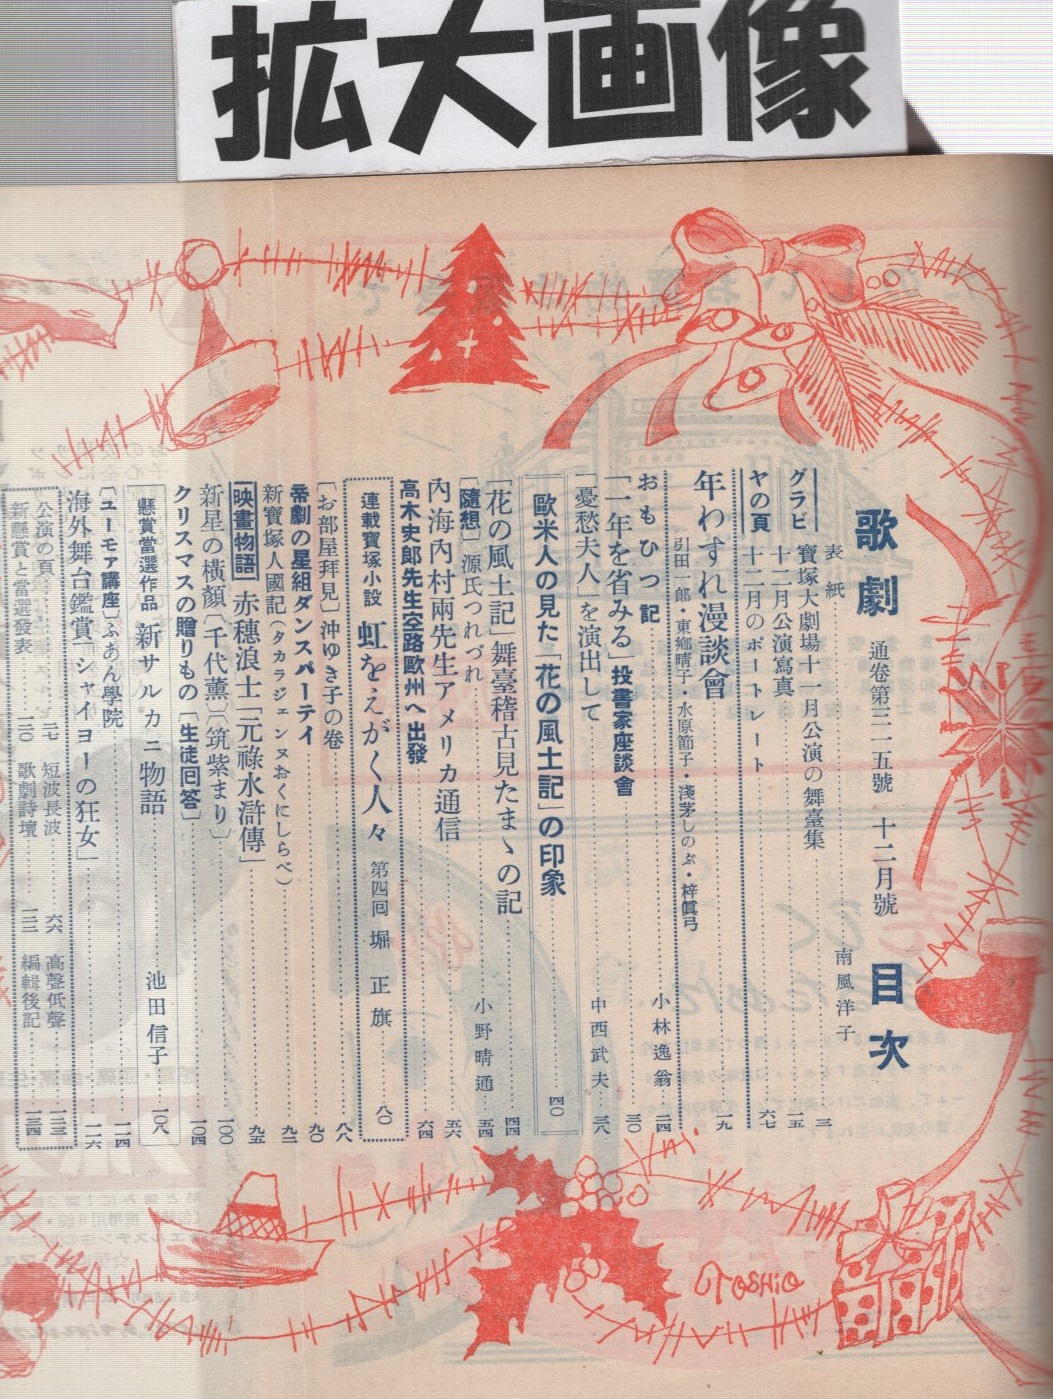 拡大画像
歌劇 通卷第三一五號 十二月號 目次
表紙 南風洋子
グラビヤの頁
寶塚大劇場十一月公演の舞臺集 三
十二月公演寫真 一五
十二月のポートレート 六七
年わすれ漫談會 九
引田一郎・東郷晴子・水原節子・淺茅しのぶ・梓眞弓
おもひつ記 小林逸翁 二四
「一年を省みる」投書家座談會 三〇
「憂愁夫人」を演出して 中西武夫 三八
歐米人の見た「花の風土記」の印象 四〇
「花の風土記」舞臺稽古見たまゝの記 四四
〔隨想〕源氏つれづれ 小野晴通 五四
內海內村兩先生アメリカ通信 五六
高木史郎先生空路歐州へ出發 六四
連載寶塚小說 虹をえがく人々 第四回 堀正旗 八〇
〔お部屋拜見〕沖ゆき子の卷 八八
歌劇の星組ダンスパーティ 九〇
新寶塚人國記(タカラジェンヌおくにしらべ) 九二
映畫物語 赤穗浪士「元祿水滸傳」 九五
新星の橫顏〔千代薰〕〔筑紫まり〕 一〇〇
クリスマスの贈りもの〔生徒回答〕 一〇四
懸賞當選作品 新サルカニ物語 池田信子 一〇八
〔ユーモア講座〕ふあん學院 一一四
海外舞台鑑賞「シャイヨーの狂女」 一一六
公演の頁 七 短波長波 六 高聲低聲 一二三
新懸賞と當選發表 一一〇 歌劇詩壇 一三二 編輯後記 一三四
TOSHIO